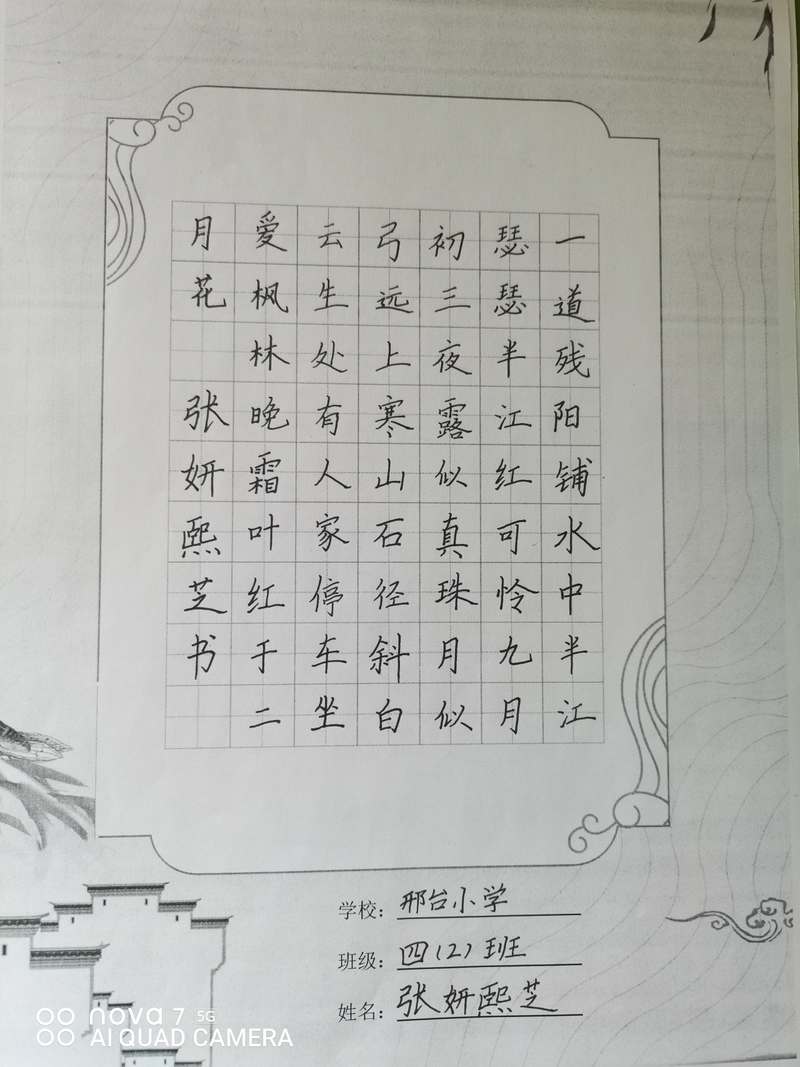 一道残阳铺水中半江
瑟瑟半江红可怜九月
初三夜露似真珠月似
弓远上寒山石径斜白
云生处有人家停车坐
爱枫林晚霜叶红于二
月花 张妍熙芝书
学校：邢台小学
班级：四（2）班
姓名：张妍熙芝
nova 7 5G
AI QUAD CAMERA